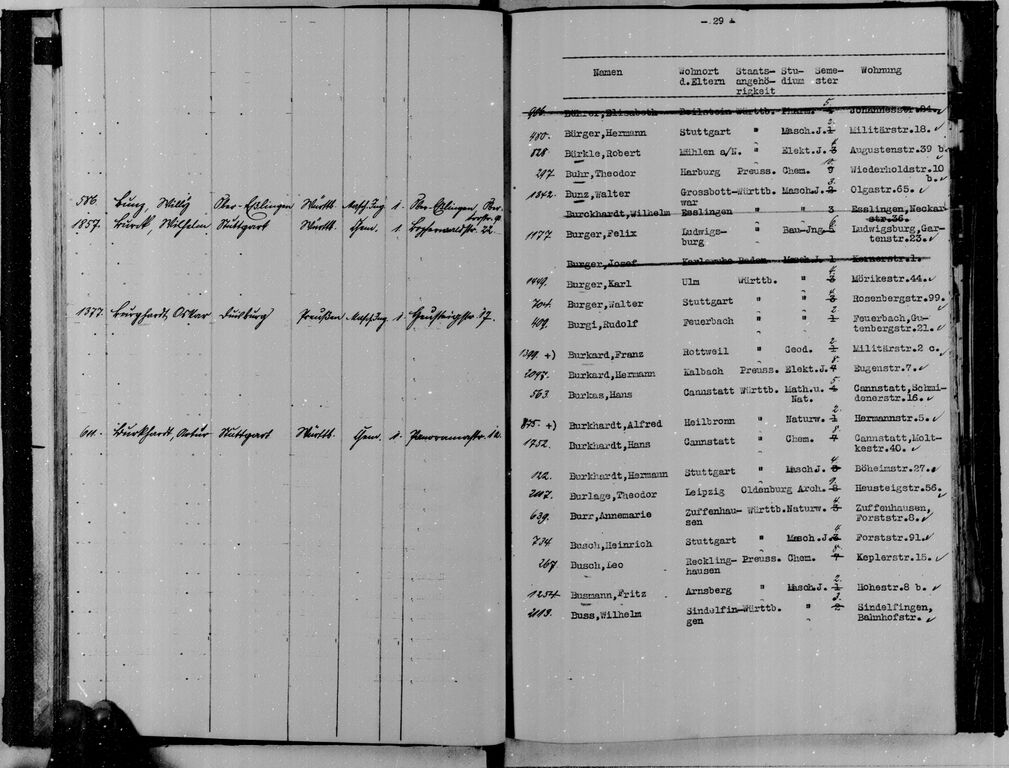 586 Bunz, Willy Ober-Eßlingen Württ. Masch. Ing 1. Ober-Eßlingen,
1857. Burck, Wilhelm Stuttgart Württ. Chem. 1. Hopfenwaldstr. 22
1377. Burghardt, Oskar Duisburg Preußen Masch. Ing 1. Heusteigstr. 57.
611. Burkhardt, Artur Stuttgart Württb. Chem. 1. Panoramastr. 12
- 29 -
Namen Wohnort Staats- Stu- Seme- Wohnung
d.Eltern angehö- dium ster
rigkeit
5
Bührer,Elisabeth Beilstein Württb. Pharm. 4 Johannesstr.84.
2
480. Bürger,Hermann Stuttgart " Masch.J.1 Militärstr.18.
4
828 Bürkle,Robert Mühlen a/N. " Elekt.J.3 Augustenstr.39 b.
10
207 Buhr,Theodor Harburg Preuss. Chem. 9 Wiederholdstr.10
b.
3
1342. Bunz,Walter Grossbott- Württb. Masch.J.2 Olgastr.65.
war
Burckhardt,Wilhelm Esslingen " " 3 Esslingen,Neckar-
str.36.
6
1177 Burger,Felix Ludwigs- " Bau-Jng.5 Ludwigsburg,Gar-
burg tenstr.23.
Burger,Josef Karlsruhe Baden Masch.J.1 Kernerstr.1.
4
1449. Burger,Karl Ulm Württb. " 3 Mörikestr.44.
4
704. Burger,Walter Stuttgart " " 3 Rosenbergstr.99.
2
409. Burgi,Rudolf Feuerbach " " 1 Feuerbach,Gu-
tenbergstr.21.
2
1399. +) Burkard,Franz Rottweil " Geod. 1 Militärstr.2 c.
8
2097. Burkard,Hermann Kalbach Preuss. Elekt.J.7 Eugenstr.7.
5
563. Burkas,Hans Cannstatt Württb. Math.u. 4 Cannstatt,Schmi-
Nat. denerstr.16.
2
875. +) Burkhardt,Alfred Heilbronn " Naturw.1 Hermannstr.5.
8
1752. Burkhardt,Hans Cannstatt " Chem. 7 Cannstatt,Molt-
kestr.40.
4
122. Burkhardt,Hermann Stuttgart " Masch.J.3 Böheimstr.27.
9
2007. Burlage,Theodor Leipzig Oldenburg Arch. 8 Heusteigstr.56.
4
639. Burr,Annemarie Zuffenhau- Württb.Naturw. 3 Zuffenhausen,
sen Forststr.8.
4
734 Busch,Heinrich Stuttgart " Masch.J.3 Forststr.91.
8
267 Busch,Leo Reckling- Preuss. Chem. 7 Keplerstr.15.
hausen
2
1254. Busmann,Fritz Arnsberg " Masch.J. 1 Hohestr.8 b.
3
2103. Buss,Wilhelm Sindelfin- Württb. " 2 Sindelfingen,
gen Bahnhofstr.